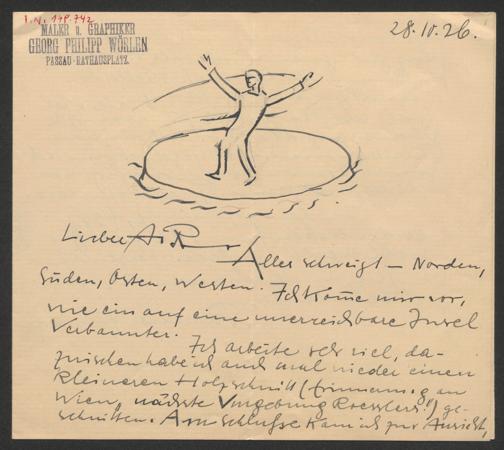 I.N. 198.742
MALER u. GRAPHIKER
GEORG PHILIPP WÖRLEN
PASSAU-RATHAUSPLATZ.
28.10.26.
Lieber A. R.
Alles schweigt – Norden,
Süden, Osten, Westen. Ich kome mir vor,
wie ein auf eine unerreichbare Insel
Verbannter.
Ich arbeite sehr viel, da-
zwischen habe ich auch mal wieder einen
kleineren Holzschnitt (Erinnerung an
Wien, nächste Umgebung Roesslers!) ge-
schnitten. Am Schlusse kam ich zur Ansicht,